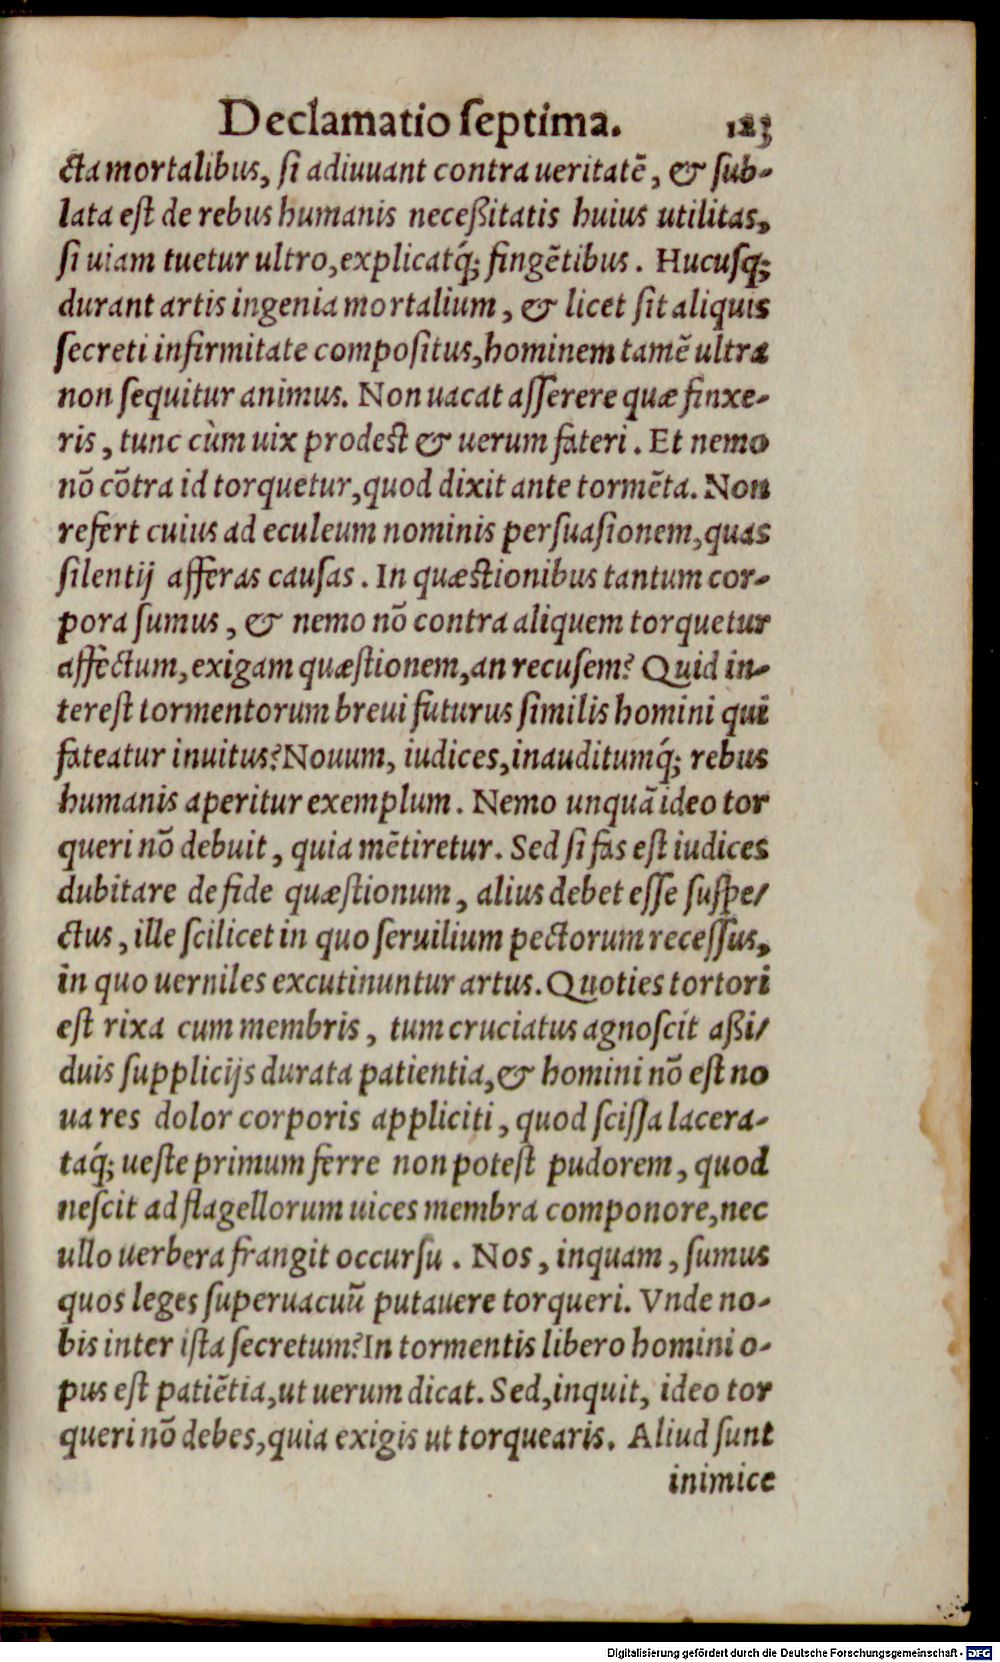 Declamatio ſeptima. 123
cta mortalibus, ſi adiuuant contra ueritatē, & ſub-
lata eſt de rebus humanis neceßitatis huius utilitas,
ſi uiam tuetur ultro, explicatq́; fingētibus. Hucuſq;
durant artis ingenia mortalium, & licet ſit aliquis
ſecreti infirmitate compoſitus, hominem tamē ultra
non ſequitur animus. Non uacat aſſerere quæ finxe-
ris, tunc cùm uix prodest & uerum fateri. Et nemo
nō cōtra id torquetur, quod dixit ante tormēta. Non
refert cuius ad eculeum nominis perſuaſionem, quas
ſilentij afferas cauſas. In quæstionibus tantum cor-
pora ſumus, & nemo nō contra aliquem torquetur
affectum, exigam quæſtionem, an recuſem? Quid in-
tereſt tormentorum breui futurus ſimilis homini qui
fateatur inuitus? Nouum, iudices, inauditumq́; rebus
humanis aperitur exemplum. Nemo unquā ideo tor
queri nō debuit, quia mētiretur. Sed ſi fas eſt iudices
dubitare de fide quæſtionum, alius debet eſſe ſuſpe/
ctus, ille ſcilicet in quo ſeruilium pectorum receſſus,
in quo uerniles excutinuntur artus. Quoties tortori
eſt rixa cum membris, tum cruciatus agnoſcit aßi/
duis ſupplicijs durata patientia, & homini nō eſt no
ua res dolor corporis appliciti, quod ſciſſa lacera-
taq́; ueſte primum ferre non poteſt pudorem, quod
neſcit ad flagellorum uices membra componore, nec
ullo uerbera frangit occurſu. Nos, inquam, ſumus
quos leges ſuperuacuū putauere torqueri. Vnde no-
bis inter iſta ſecretum? In tormentis libero homini o-
pus eſt patiētia, ut uerum dicat. Sed, inquit, ideo tor
queri nō debes, quia exigis ut torquearis. Aliud ſunt
inimice
Digitalisierung gefördert durch die Deutsche Forschungsgemeinschaft - DFG